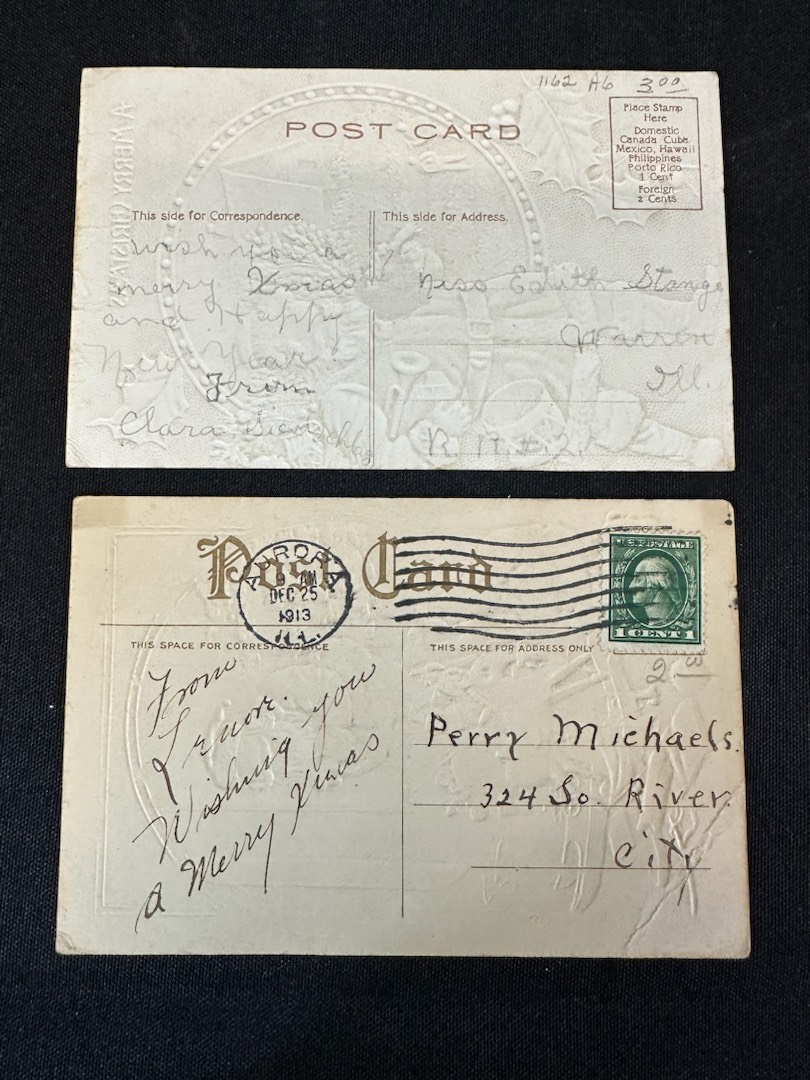 1162 A6 3.00
POST CARD
Place Stamp
Here
Domestic
Canada Cuba
Mexico, Hawaii
Philippines
Porto Rico
1 Cent
Foreign
2 Cents
A MERRY CHRISTMAS
This side for Correspondence.
This side for Address.
wish you a
merry Xmas
and Happy
New Year.
From
Clara
Miss Edith Stange
Warren
Ill.
R. R. #. 2.
Post Card
AURORA
9 AM
DEC 25
1913
ILL.
U.S. POSTAGE
1 CENT 1
THIS SPACE FOR CORRESPONDENCE
THIS SPACE FOR ADDRESS ONLY
From
Lenore.
Wishing you
a Merry Xmas
Perry Michaels.
324 So. River.
City